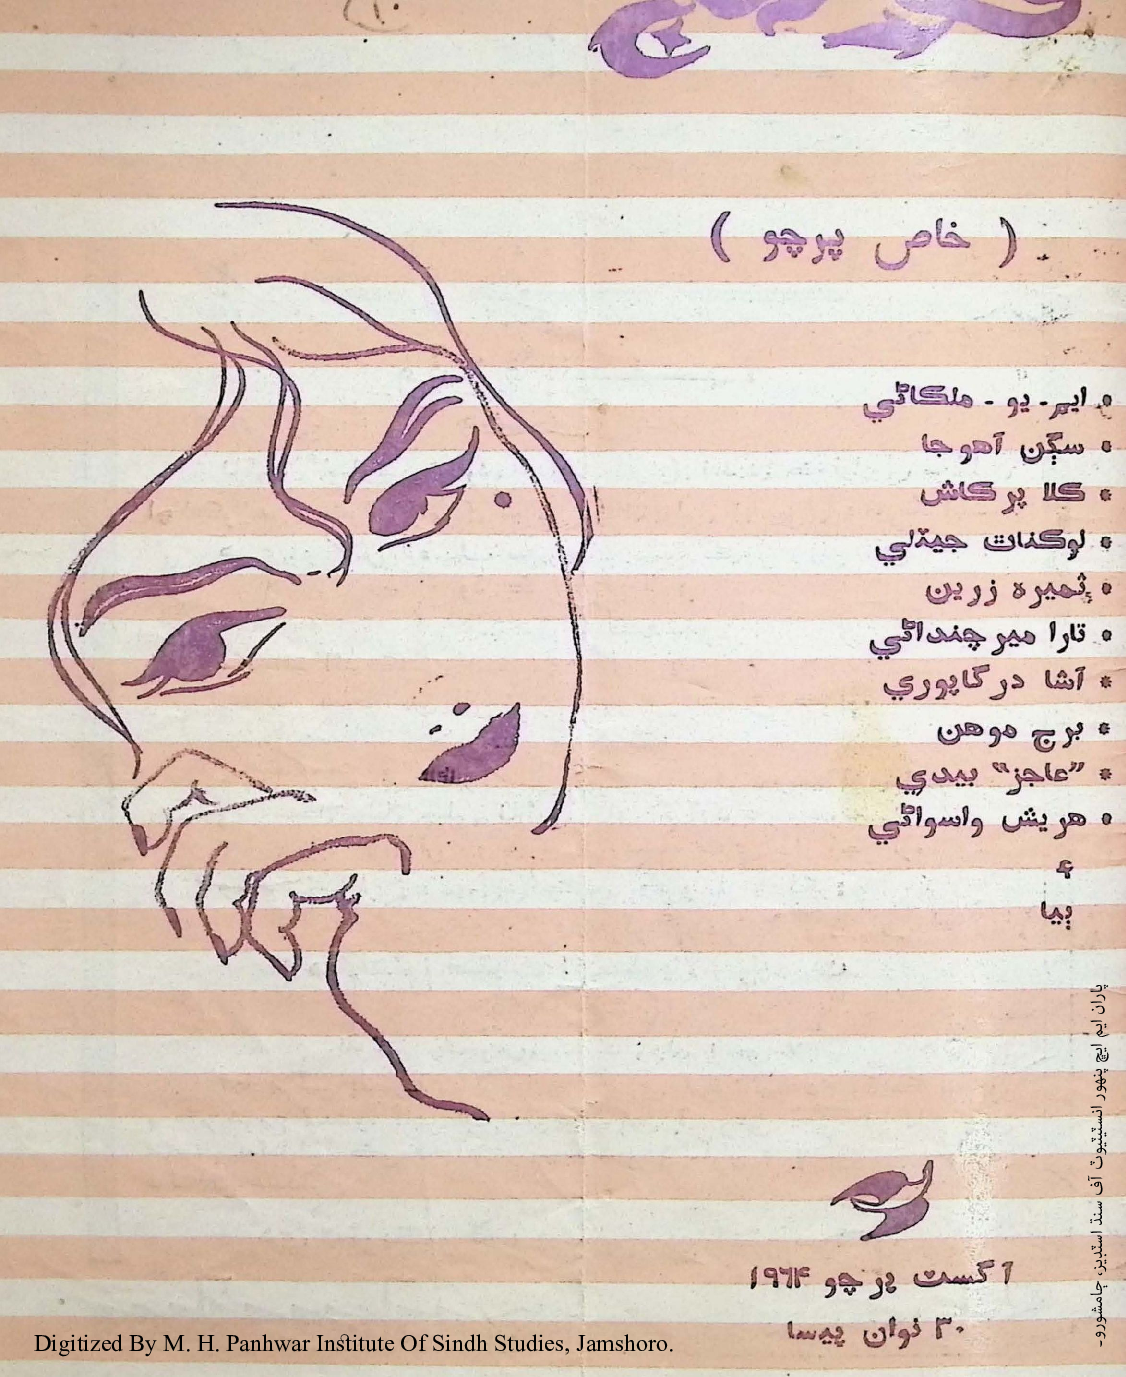 ١٠
( خاص پرچو )
• ايم۔ يو۔ ملڪاڻي
• سڳن آهوجا
• ڪلا پرڪاش
• لوڪناٿ جيٽلي
• ثميره زرين
• تارا ميرچنداڻي
• آشا درگاپوري
• برج موهن
• ”عاجز“ بيدي
• هريش واسواڻي
۽
ٻيا
آگسٽ پرچو ١٩٦۴
٣٠ نوان پيسا
پاران ايم ايڇ پنهور انسٽيٽيوٽ آف سنڌ اسٽڊيز، ڄامشورو۔
Digitized By M. H. Panhwar Institute Of Sindh Studies, Jamshoro.